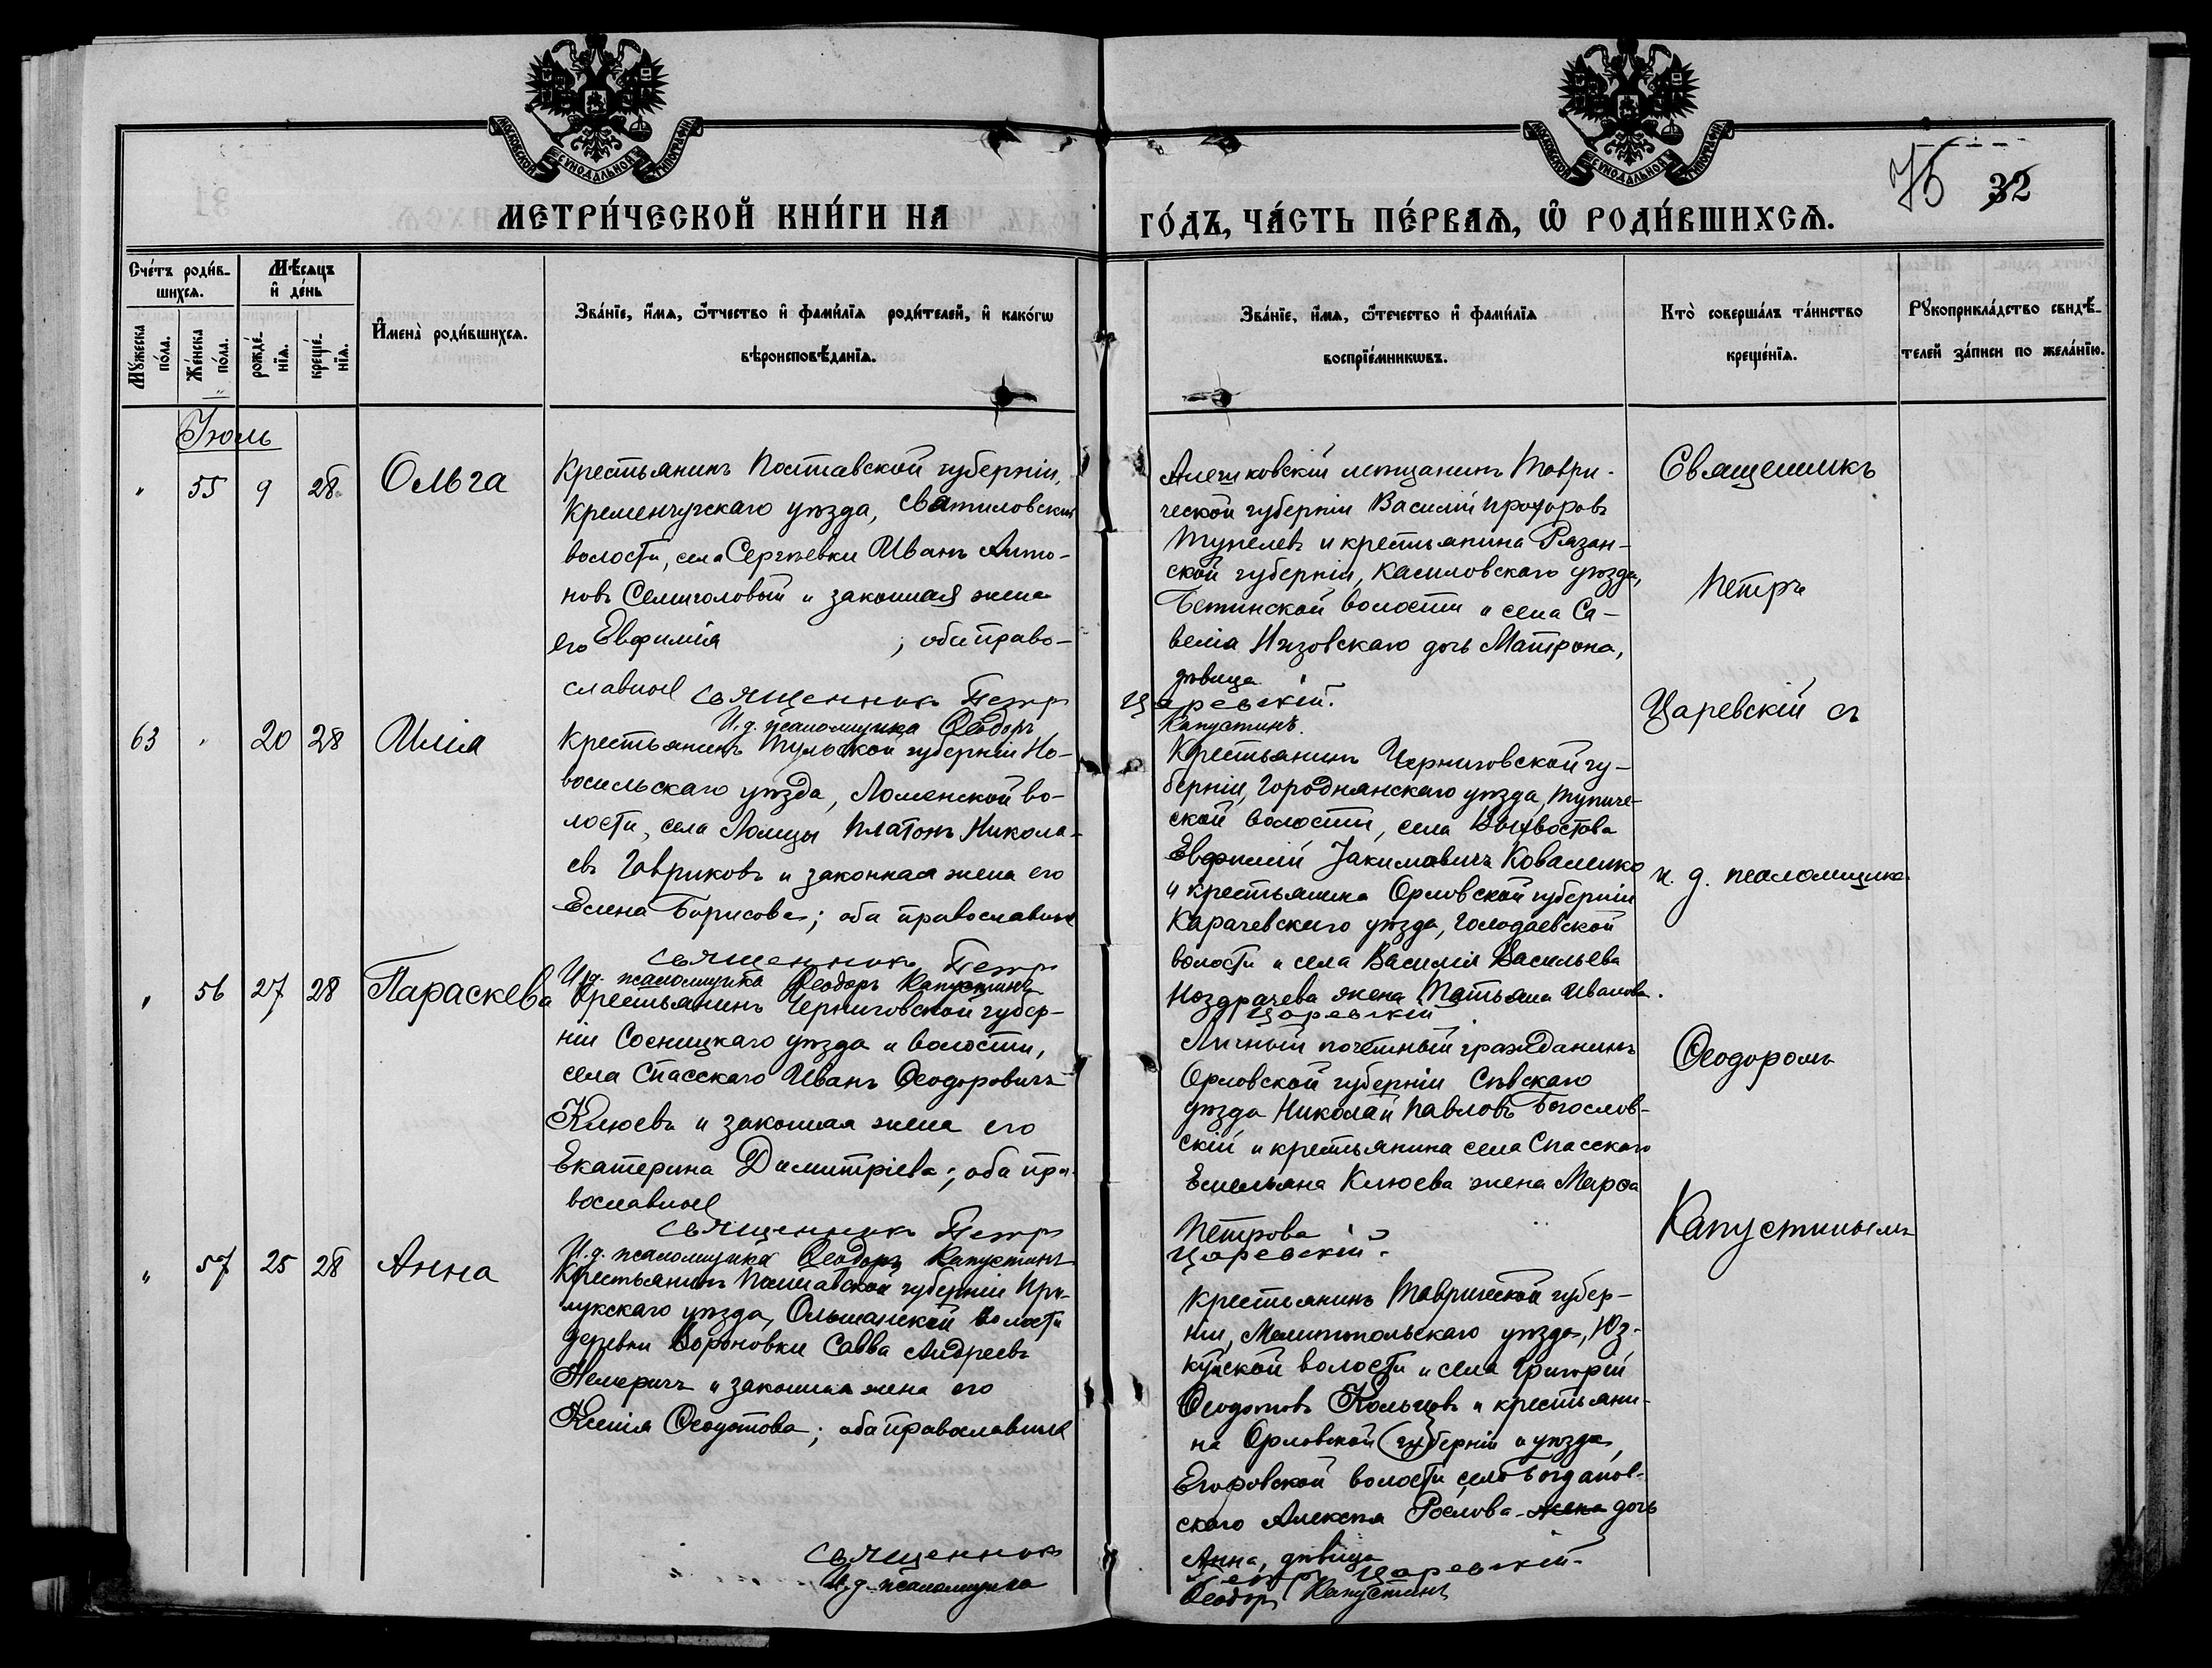 МОСКОВСКОЙ СѴНОДАЛЬНОЙ ТИПОГРАФІИ
МОСКОВСКОЙ СѴНОДАЛЬНОЙ ТИПОГРАФІИ
75 32
МЕТРИ́ЧЕСКОЙ КНИ́ГИ НА
ГО́ДЪ, ЧА́СТЬ ПЕ́РВАѦ, Ѽ РОДИ́ВШИХСѦ.
Сче́тъ роди́в-
шихсѧ.
Мꙋ́жеска
по́ла.
Же́нска
по́ла.
Мѣ́сѧцъ
и҆ де́нь
рожде́-
нїѧ.
креще́-
нїѧ.
И҆мена̀ роди́вшихсѧ.
Зва́нїе, и҆́мѧ, ѻ҆́тчество и҆ фами́лїѧ роди́телей, и҆ како́гѡ
вѣроисповѣ́данїѧ.
Зва́нїе, и҆́мѧ, ѻ҆́течество и҆ фами́лїѧ
воспрїе́мникѡвъ.
Кто̀ соверша́лъ та́инство
креще́нїѧ.
Рꙋкоприкла́дство свидѣ́-
телей за́писи по жела́нїю.
Іюль
" 55 9 28 Ольга
Крестьянинъ Полтавской губерніи,
Кременчугскаго уѣзда,
волости, села Сергѣевки Иванъ Анто-
новъ Семиголовый и законная жена
его Евфимія ; оба право-
славные священникъ Петръ
И.д. псаломщика Ѳеодоръ
Алешковскій мещанинъ Таври-
ческой губерніи Василій Прохоровъ
Тупелевъ и крестьянина Рязан-
ской губерніи, Касимовскаго уѣзда,
Бетинской волости и села Са-
велія Низовскаго дочь Матрона,
дѣвица
Царевскій.
Капустинъ.
63 " 20 28 Илія
Крестьянинъ Тульской губерніи Но-
восильскаго уѣзда, Ломенской во-
лости, села Ломцы Платонъ Никола-
евъ Гавриковъ и законная жена его
Елена Борисова; оба православные
священникъ Петръ
И.д. псаломщика Ѳеодоръ Капустинъ
Крестьянинъ Черниговской гу-
берніи, Городнянскаго уѣзда, Тупиче-
ской волости, села Выхвостова
Евфимій Іакимовичъ Коваленко
и крестьянина Орловской губерніи
Карачевскаго уѣзда, Голодаевской
волости и села Василія Васильева
Ноздрачева жена Татьяна Иванова.
Царевскій
" 56 27 28 Параскева
Крестьянинъ Черниговской губер-
ніи Сосницкаго уѣзда и волости,
села Спасскаго Иванъ Ѳеодоровичъ
Клюевъ и законная жена его
Екатерина Димитріева; оба пра-
вославные
священникъ Петръ
И.д. псаломщика Ѳеодоръ Капустинъ
Личный почетный гражданинъ
Орловской губерніи Сѣвскаго
уѣзда Николай Павловъ Богослов-
скій и крестьянина села Спасскаго
Емельяна Клюева жена Марѳа
Петрова
Царевскій.
" 57 25 28 Анна
Крестьянинъ Полтавской губерніи При-
лукскаго уѣзда, Ольшанской волости
деревни Вороновки Савва Андреевъ
Немеричъ и законная жена его
Ксенія Ѳеодотова; оба православные
священникъ
И.д. псаломщика
Крестьянинъ Таврической губер-
ніи, Мелитопольскаго уѣзда, Юз-
куйской волости и села Григорій
Ѳеодотовъ Кольцовъ и крестьяни-
на Орловской губерніи и уѣзда,
Егоровской волости села Богданов-
скаго Алексѣя Рослова жена дочь
Анна, дѣвица
Петръ Царевскій.
Ѳеодоръ Капустинъ
Священникъ
Петръ
Царевскій съ
и. д. псаломщика
Ѳеодоромъ
Капустинымъ